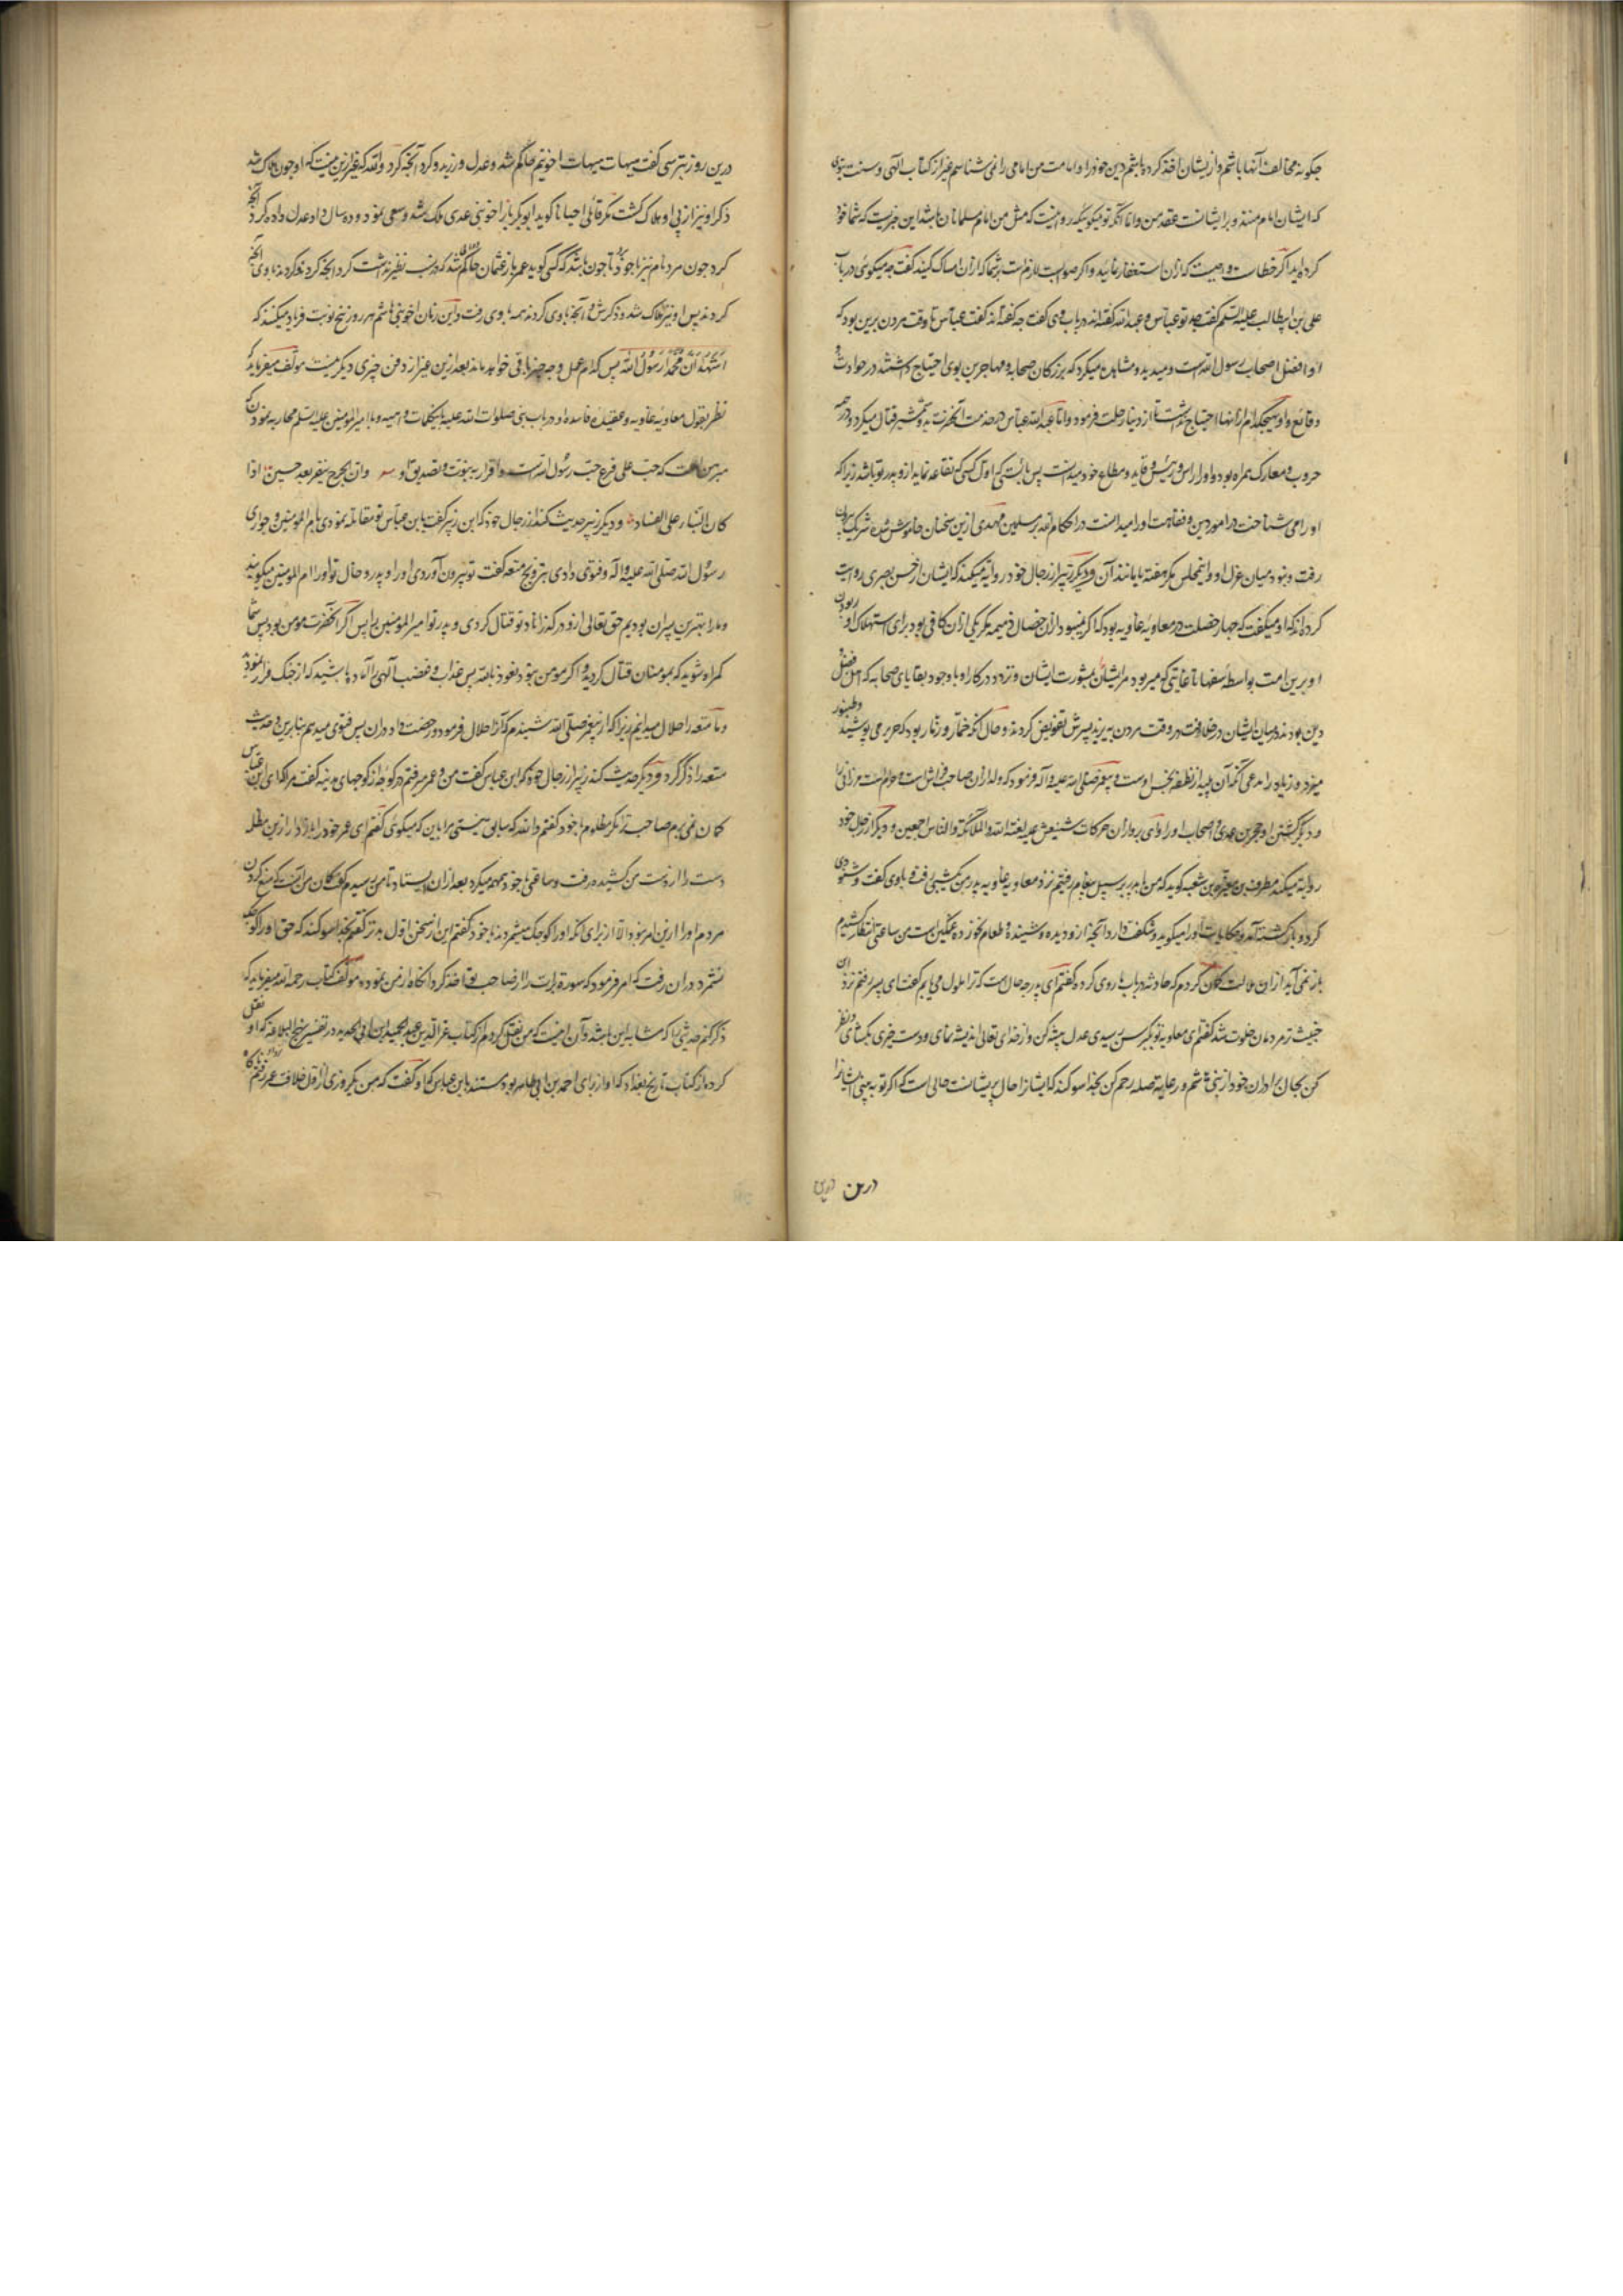 چکونه مخالف آنها باشم و از ایشان اخذ کرده باشم دین خود را و امامت من امامی را نمی شناسم غیر از کتاب الهی و سنت نبوی
که ایشان امام منند و بر ایشانست عقد من و اما آنکه تو میکویی که رو نیست که مثل من امام مسلمانان باشد این خبریست که شما خود
کرده اید اکر خطاست واجبست که از آن استغفار نمایید و اکر صوابست لازم است بر شما که از آن امساک کنید کفت چه میکوئی در باب
علی بن ابیطالب علیه السلم کفت جد تو عباس و عبد الله کفته اند در باب وی کفت چه کفته اند کفت عباس تا وقت مردن برین بود که
او افضل اصحاب رسول الله است و میدید و مشاهده میکرد که بزرکان صحابه و مهاجرین بوی احتیاج داشتند در حوادث و
وقائع و او بهیچکدام از آنها احتیاج نداشت تا از دنیا رحلت فرمود و اما عبد الله عباس در خدمت آنحضرت بدو شمشیر قتال میکرد و در جمیع
حروب و معارک همراه بود و او را راس و رئیس و قاید و مطاع خود میدانست پس بایستی که اول کسی که تقاعد نماید از و پدر تو باشد زیرا که
او را می شناخت در امور دین و فقاهت او را میدانست در احکام الله بر مسلمین مهدی ازین سخنان خاموش شده
رفت و نبود میان عزل او و انمجلس مکر هفته یا مانند آن و دیکر زبیر از رجال خود روایه میکند که ایشان از حسن بصری روایت
کرده اند که او میکفت که چهار خصلت در معاویه غاویه بود که اکر نمیبود از آن خصال ذمیمه مکر یکی از آن کافی بود برای استهلاک او ربودن
او برین امت بواسطه سفها تا غایتی که میر بود مر ایشان بمشورت ایشان و نزدد در کار او با وجود بقایای صحابه که اهل فضل و
دین بودند در میان ایشان در خلافت در وقت مردن به یزید پسرش تفویض کردند و حال آنکه خمار و زمار بود که حریر می پوشید و طنبور
میزد و زیاد را مدعی آنکه آن پلید از نطفه نجس اوست و پیغمبر صلی الله علیه و آله فرمود که ولد از آن صاحب فراش است و حرام است بر زانی
و دیکر کشتن او حجر بن عدی و اصحاب او را وای بروا از آن حرکات شنیعش علیه لعنة الله و الملائکة و الناس اجمعین و دیکر از رجال خود
روایة میکند مطرف بن مغیرة بن شعبه کوید که من با پدر بر سبیل پیغام رفتیم نزد معاویه غاویه پدر من یک شبی رفت و باوی کفت و شنودی
کرد و بازکشته آمد و حکایات او را میکوید و شکفت دارد آنچه از و دیده و شنیده و طعام نخورده غمکین است من ساعتی انتظار کشیدم
باز نمی آید از آن ملالت کمان کردم که حادثه در باب ما روی کرده کفتم ای پدر چه حال است که ترا ملول می یابم کفت ای پسر رفتم نزد آن
خبیث ترمردمان خلوت شد کفتم ای معاویه تو بکبر سن رسیدی عدل پیشه کن و از خدای تعالی اندیشه نمای و دست خیری بکشای و نظر
کن بحال برادران خود از بنی هاشم و رعایة صله رحم کن بخدا سوکند که ایشانرا حال پریشانست حالی است که اکر تو به بینی ایشانرا
درین
درین روز بترسی کفت هیهات هیهات اخو تیم حاکم شد و عدل ورزید و کرد آنچه کرد و الله که غیر ازین نیست که او چون هلاک شد
ذکر او نیز از پی او هلاک کشت مکر قائلی احیانا کوید ابو بکر باز اخو بنی عدی ملک شد و سعی نمود و ده سال داد عدل داده کرد آنچه
کرد چون مرد نام نیز با خود تا چون باشد که کسی کوید عمر باز عثمان حاکم شد که در نسب نظیر نداشت کرد آنچه کرد و کردند با وی آنچه
کردند پس او نیز هلاک شد و ذکرش و آنچه با وی کردند همه با وی رفت و این زمان اخو بنی هاشم هر روز پنج نوبت فریاد میکنند که
اشهد ان محمدا رسول الله پس کدام عمل و چه چیز باقی خواهد ماند بعد ازین غیر از دفن چیزی دیکر نیست مولف میفرماید که
نظر بقول معاویه غاویه و عقیده فاسده او در باب نبی صلوات الله علیه باینکلمات واهیه و با امیر المومنین علیه السلم محاربه نمودن که
مبرهن است که حب علی فرع حب رسول الله است و اقرار به نبوت و تصدیق او وان بجرح ینفر بعد حسین اذا
کان البناء علی الفساد و دیکر زبیر حدیث کند از رجال خود که ابن زبیر کفت بابن عباس تو مقاتله نمودی بام المومنین و حواری
رسول الله صلی الله علیه و اله و فتوی دادی بتزویج متعه کفت تو بیرون آوردی او را و پدر و خال تو او را ام المومنین میکویند
و ما را بهترین پسران بودیم حق تعالی از و درکذراناد تو قتال کردی و پدر تو امیر المومنین را پس اکر آنحضرت مومن بود پس شما
کمراه شوید که بمومنان قتال کردید و اکر مومن نبود نعوذ بالله پس عذاب و غضب الهی را آماده باشید که از جنک فرار نمودید
و ما متعه را حلال میدانیم زیرا که از پیغمبر صلی الله شنیدم که آنرا حلال فرمود و رخصت داد در آن پس فتوی میدهم بنابرین و حدیث
متعه را ذکر کرد و دیکر حدیث کند زبیر از رجال خود که ابن عباس کفت من و عمر میرفتم در کوچه از کوچهای مدینه کفت مرا که ای ابن عباس
کمان نمی برم صاحب ترا مکر مظلوم با خود کفتم و الله که سابق نیستی مرا باین که میکوئی کفتم ای عمر خود را باز دار ازین مظلمه
دست را از دست من کشیده رفت و ساعتی با خود همهمه میکرد بعد ازان ایستاد تا من رسیدم کفت کمان من آنست که منع کردن
مردم او را ازین امر نبود الا از برای آنکه او را کوچک میشمردند با خود کفتم این از سخن اول بدتر کفتم بخدا سوکند که حق او را کوچک
نشمرد دران وقت که امر فرمود که سوره برات را از صاحب تو اخذ کرد آنکاه از من نموده مولف کتاب رحمه الله میفرماید که
ذکر کنم حدیثی را که مشابه این باشد و آن اینست که من نقل کردم از کتاب عز الدین عبد الحمید ابن ابی الحدید در تفسیر نهج البلاغه که او نقل
کرده از کتاب تاریخ بغداد که او از برای احمد بن ابی طاهر بود بسند بابن عباس که او کفت که من یکروزی از اول خلافت عمر رفتم